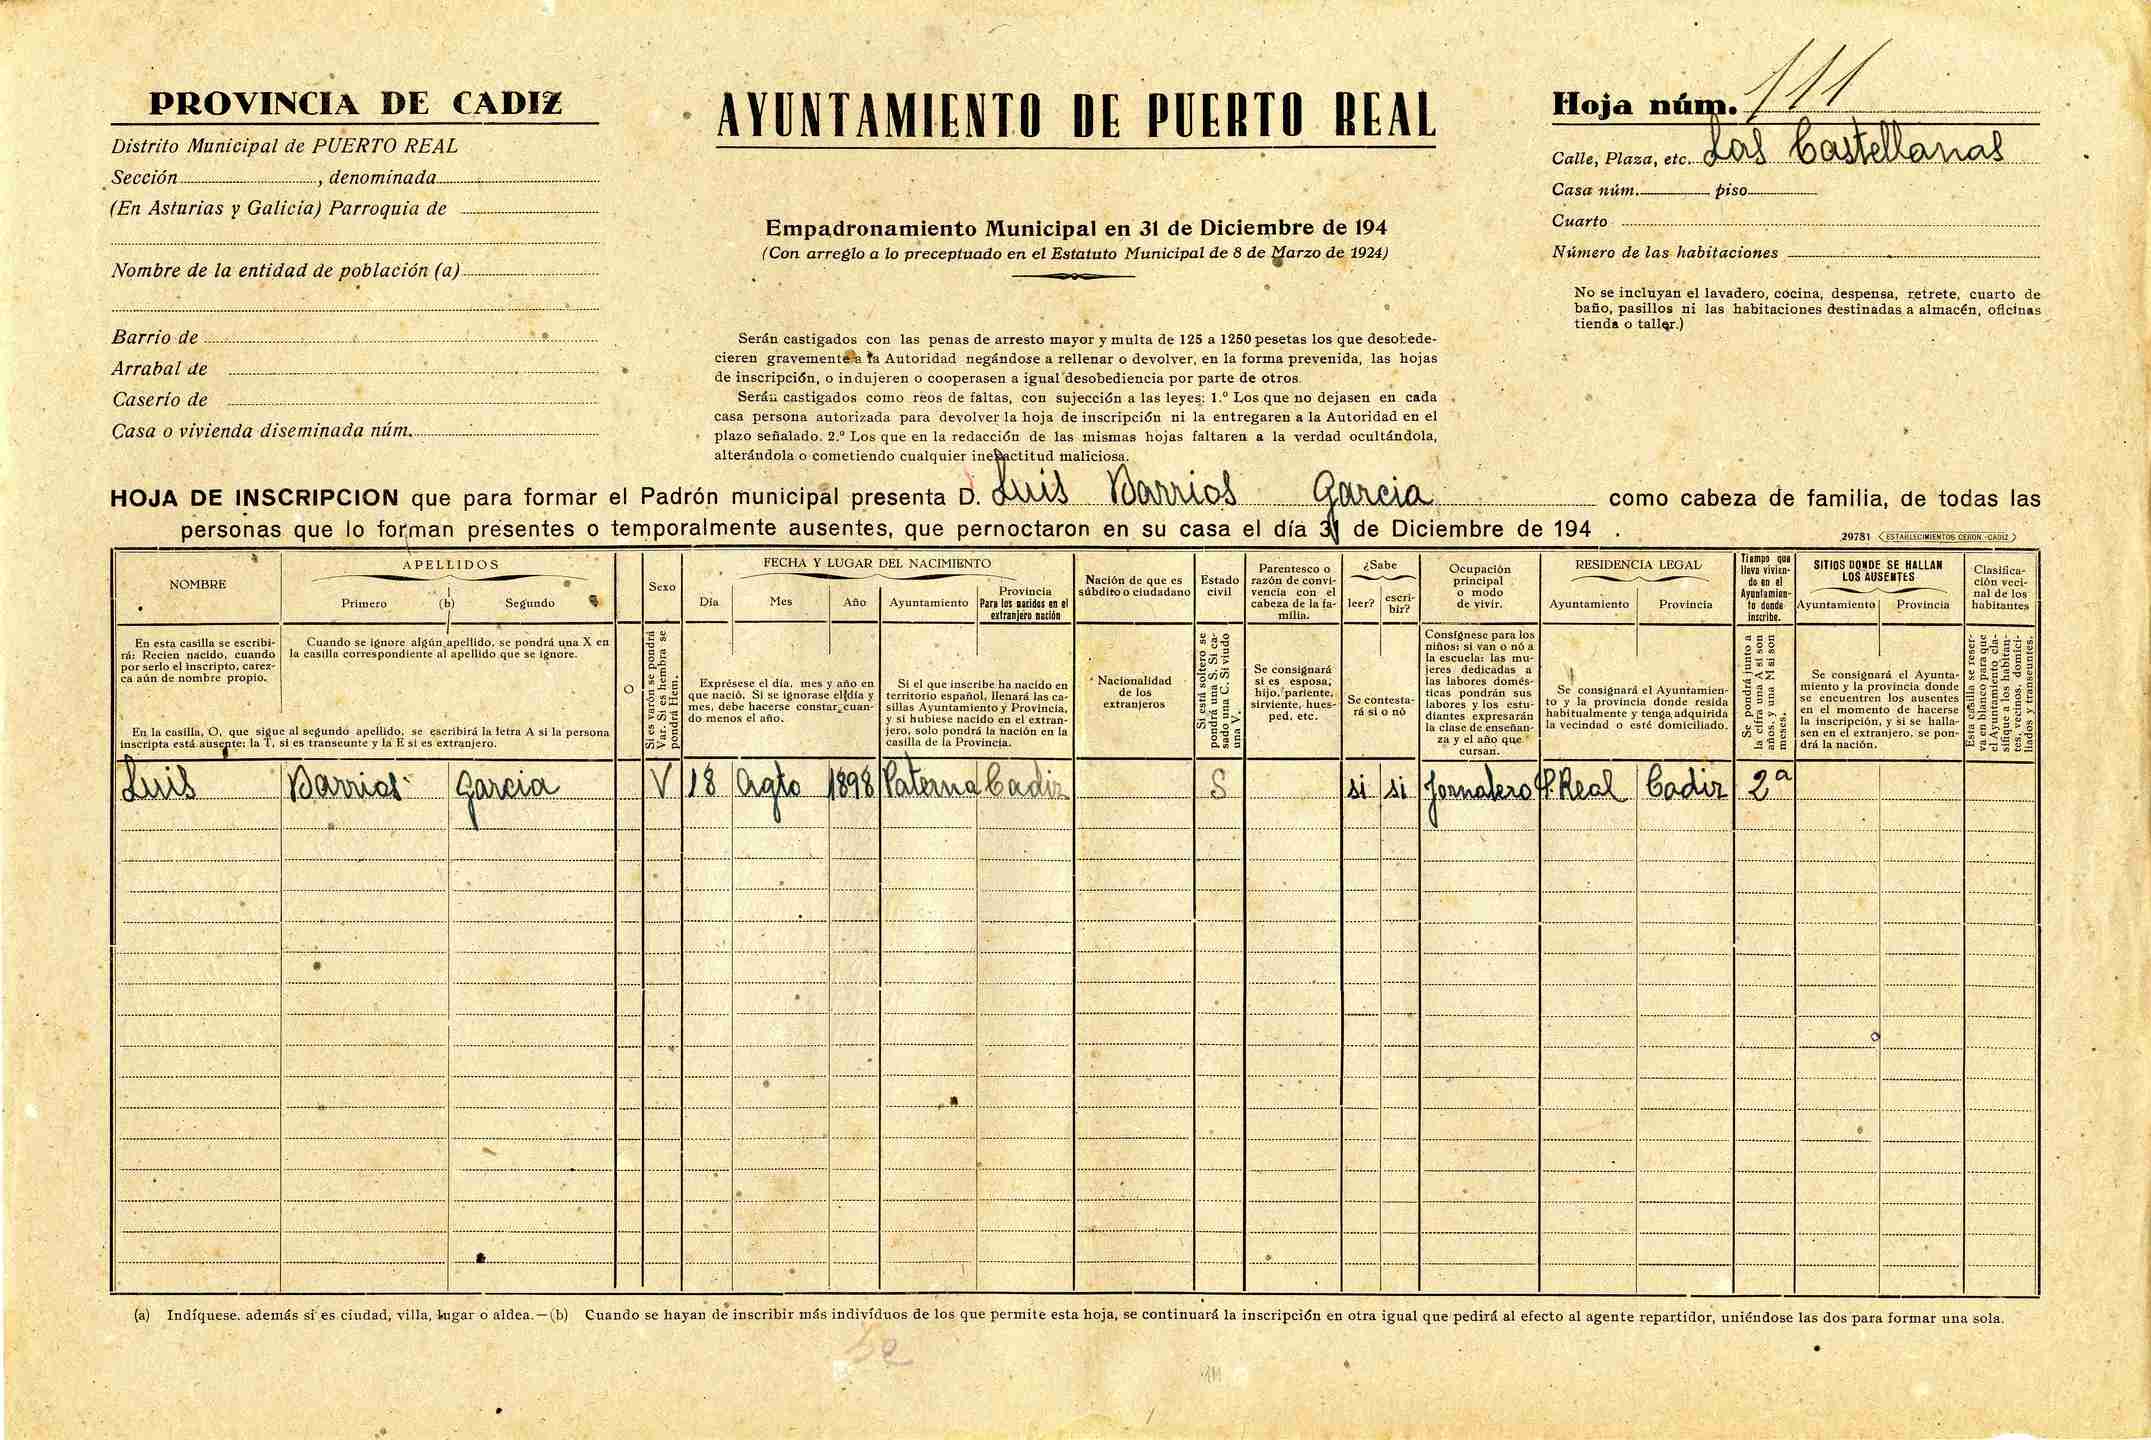 PROVINCIA DE CADIZ
Distrito Municipal de PUERTO REAL
Sección , denominada
(En Asturias y Galicia) Parroquia de
Nombre de la entidad de población (a)
Barrio de
Arrabal de
Caserío de
Casa o vivienda diseminada núm.
AYUNTAMIENTO DE PUERTO REAL
Empadronamiento Municipal en 31 de Diciembre de 194
(Con arreglo a lo preceptuado en el Estatuto Municipal de 8 de Marzo de 1924)
Serán castigados con las penas de arresto mayor y multa de 125 a 1250 pesetas los que desobede-
cieren gravemente a la Autoridad negándose a rellenar o devolver, en la forma prevenida, las hojas
de inscripción, o indujeren o cooperasen a igual desobediencia por parte de otros.
Serán castigados como reos de faltas, con sujección a las leyes: 1.º Los que no dejasen en cada
casa persona autorizada para devolver la hoja de inscripción ni la entregaren a la Autoridad en el
plazo señalado. 2.º Los que en la redacción de las mismas hojas faltaren a la verdad ocultándola,
alterándola o cometiendo cualquier inexactitud maliciosa.
Hoja núm. 111
Calle, Plaza, etc. Las Castellanas
Casa núm. piso
Cuarto
Número de las habitaciones
No se incluyan el lavadero, cocina, despensa, retrete, cuarto de
baño, pasillos ni las habitaciones destinadas a almacén, oficinas
tienda o taller.)
HOJA DE INSCRIPCION que para formar el Padrón municipal presenta D. Luis Barrios Garcia como cabeza de familia, de todas las
personas que lo forman presentes o temporalmente ausentes, que pernoctaron en su casa el día 31 de Diciembre de 194 .
29781 ESTABLECIMIENTOS CERON.-CADIZ
NOMBRE
APELLIDOS
Primero (b) Segundo
Sexo
FECHA Y LUGAR DEL NACIMIENTO
Día Mes Año Ayuntamiento
Provincia
Para los nacidos en el
extranjero nación
Nación de que es
súbdito o ciudadano
Estado
civil
Parentesco o
razón de convi-
vencia con el
cabeza de la fa-
milia.
¿Sabe
leer? escri-
bir?
Ocupación
principal
o modo
de vivir.
RESIDENCIA LEGAL
Ayuntamiento Provincia
Tiempo que
lleva vivien-
do en el
Ayuntamien-
to donde
inscribe.
SITIOS DONDE SE HALLAN
LOS AUSENTES
Ayuntamiento Provincia
Clasifica-
ción veci-
nal de los
habitantes
En esta casilla se escribi-
rá: Recien nacido, cuando
por serlo el inscripto, carez-
ca aún de nombre propio.
Cuando se ignore algún apellido, se pondrá una X en
la casilla correspondiente al apellido que se ignore.
En la casilla, O, que sigue al segundo apellido, se escribirá la letra A si la persona
inscripta está ausente: la T, si es transeunte y la E si es extranjero.
O
Si es varón se pondrá
Var. Si es hembra se
pondrá Hem.
Exprésese el día, mes y año en
que nació. Si se ignorase el día y
mes, debe hacerse constar cuan-
do menos el año.
Si el que inscribe ha nacido en
territorio español, llenará las ca-
sillas Ayuntamiento y Provincia,
y si hubiese nacido en el extran-
jero, solo pondrá la nación en la
casilla de la Provincia.
Nacionalidad
de los
extranjeros
Si está soltero se
pondrá una S. Si ca-
sado una C. Si viudo
una V.
Se consignará
si es esposa,
hijo, pariente,
sirviente, hues-
ped, etc.
Se contesta-
rá si o nó
Consígnese para los
niños: si van o nó a
la escuela: las mu-
jeres dedicadas a
las labores domés-
ticas pondrán sus
labores y los estu-
diantes expresarán
la clase de enseñan-
za y el año que
cursan.
Se consignará el Ayuntamien-
to y la provincia donde resida
habitualmente y tenga adquirida
la vecindad o esté domiciliado.
Se pondrá junto a
la cifra una A si son
años, y una M si son
meses.
Se consignará el Ayunta-
miento y la provincia donde
se encuentren los ausentes
en el momento de hacerse
la inscripción, y si se halla-
sen en el extranjero, se pon-
drá la nación.
Esta casilla se reser-
va en blanco para que
el Ayuntamiento cla-
sifique a los habitan-
tes, vecinos, domici-
liados y transeuntes.
Luis Barrios Garcia V 18 Agto 1898 Paterna Cadiz S si si Jornalero P. Real Cadiz 2ª
(a) Indíquese. además si es ciudad, villa, lugar o aldea.—(b) Cuando se hayan de inscribir más indivíduos de los que permite esta hoja, se continuará la inscripción en otra igual que pedirá al efecto al agente repartidor, uniéndose las dos para formar una sola.